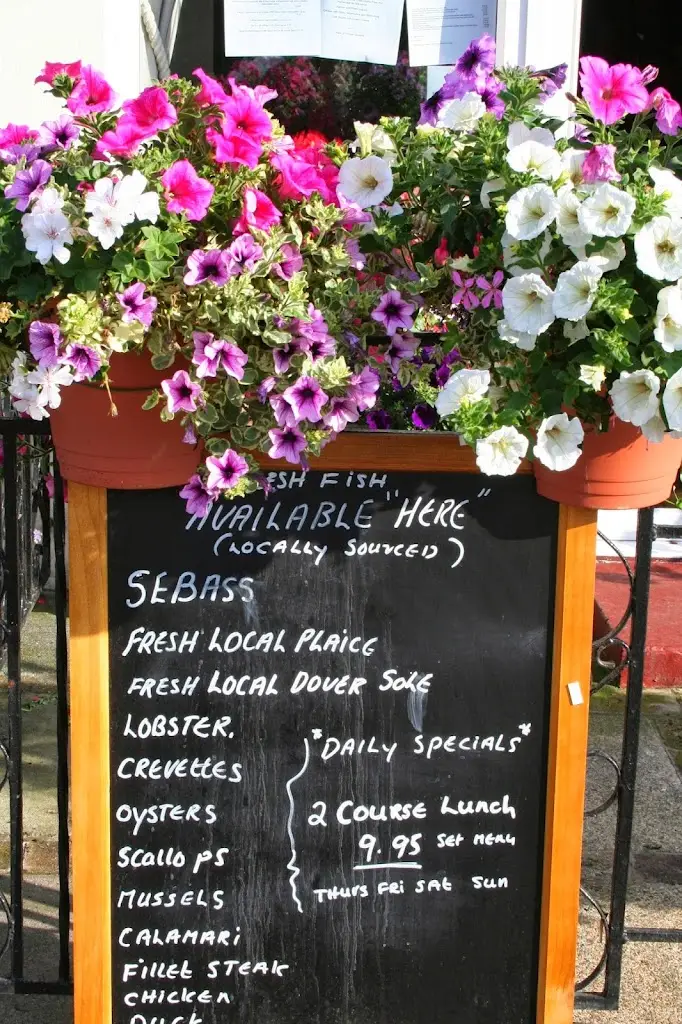 ESH FISH
AVAILABLE "HERE"
(LOCALLY SOURCED)
SEBASS
FRESH LOCAL PLAICE
FRESH LOCAL DOVER SOLE
LOBSTER.
CREVETTES
OYSTERS
SCALLOPS
MUSSELS
CALAMARI
FILLET STEAK
CHICKEN
DUCK
*DAILY SPECIALS*
2 COURSE LUNCH
9.95 SET MENU
THURS FRI SAT SUN